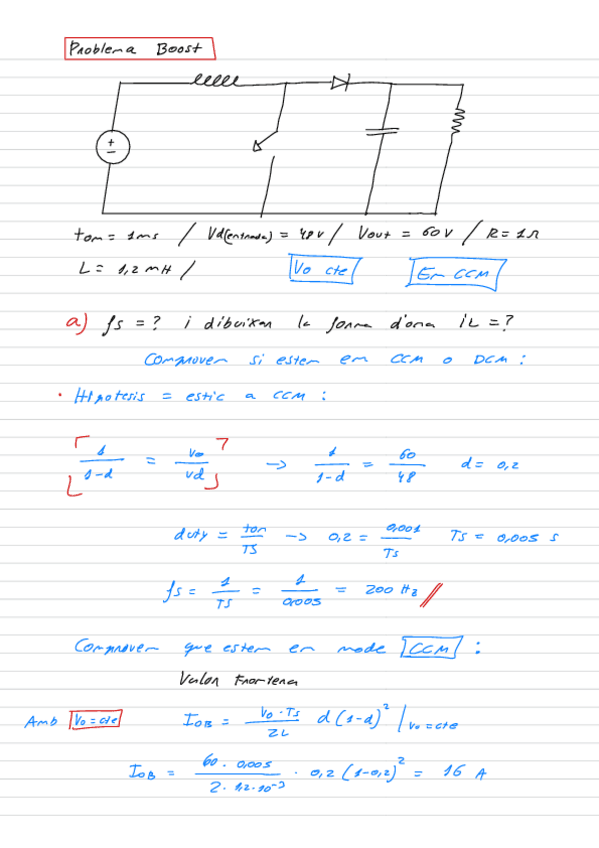 Problema Boost
+
−
ton = 1ms / Vd(entrada) = 48V / Vout = 60V / R = 1Ω
L = 1,2 mH / Vo cte En CCM
a) fs = ? i dibuixar la forma d'ona iL = ?
Comprovem si estem em CCM o DCM :
· Hipotesis = estic a CCM :
1/(1-d) = Vo/Vd → 1/(1-d) = 60/48 d = 0,2
duty = ton/TS → 0,2 = 0,001/Ts TS = 0,005 s
fs = 1/TS = 1/0,005 = 200 Hz //
Comprovem que estem en mode CCM :
Valor Frontera
Amb Vo = cte IOB = Vo · Ts/2L d(1-d)² | Vo = cte
IOB = 60 · 0,005/2 · 1,2 · 10⁻³ · 0,2 (1-0,2)² = 16 A